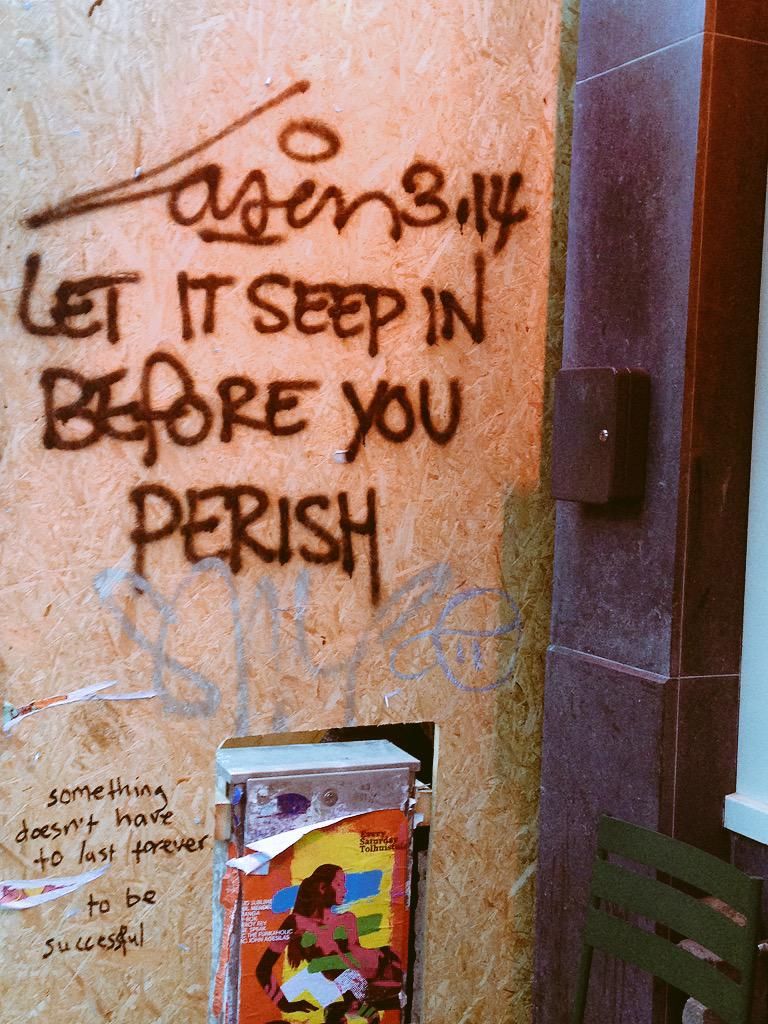 Laser 3.14
LET IT SEEP IN
BEFORE YOU
PERISH
something
doesn't have
to last forever
to be
successful
Every
Saturday
THE FUNKAHOLIC
JOHN AGESILAS